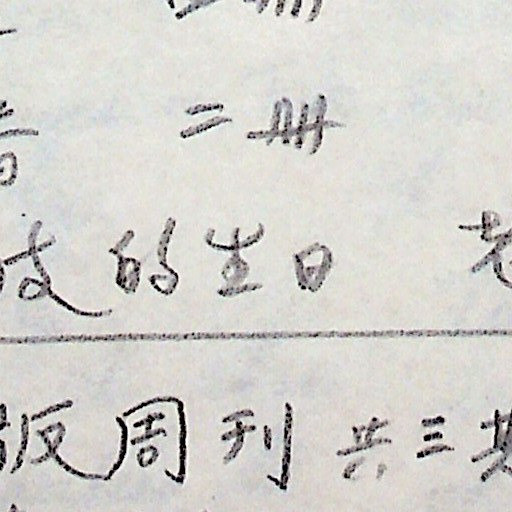 二册
的生日 老
版周刊 共三期